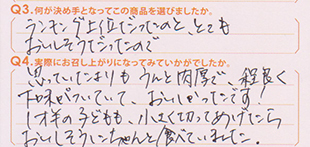 Q3.何が決め手となってこの商品を選びましたか。
ランキング上位だったのと、とても
おいしそうだったので
Q4.実際にお召し上がりになってみていかがでしたか。
思っていたよりも うんと肉厚で、程良く
味がついていて、おいしかったです!
1才半の子どもも、小さく切ってあげたら
おいしそうにちゃんと食べていました。